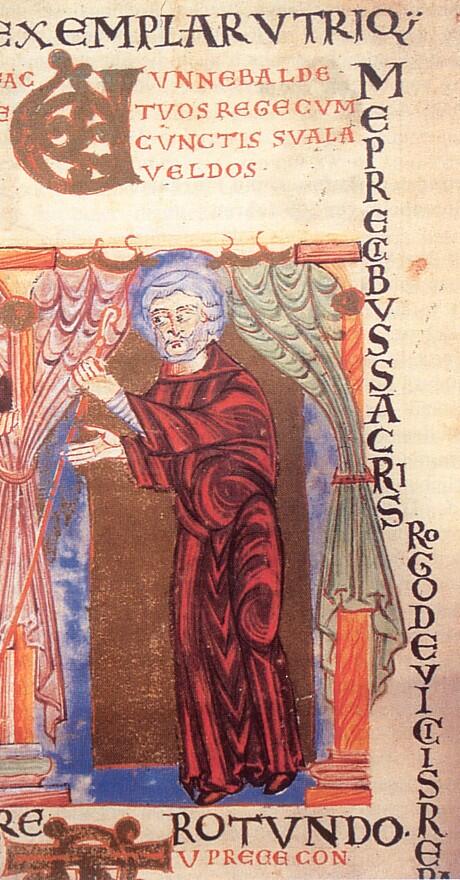 EXEMPLAR VTRIQ;
AC UNNEBALDE
E TVOS REGE CVM
CVNCTIS SVALA
VELDOS·
ME PRECIBVS SACRIS
ROGO DEVICIS RE
RE ROTVNDO·
V PRECE CON